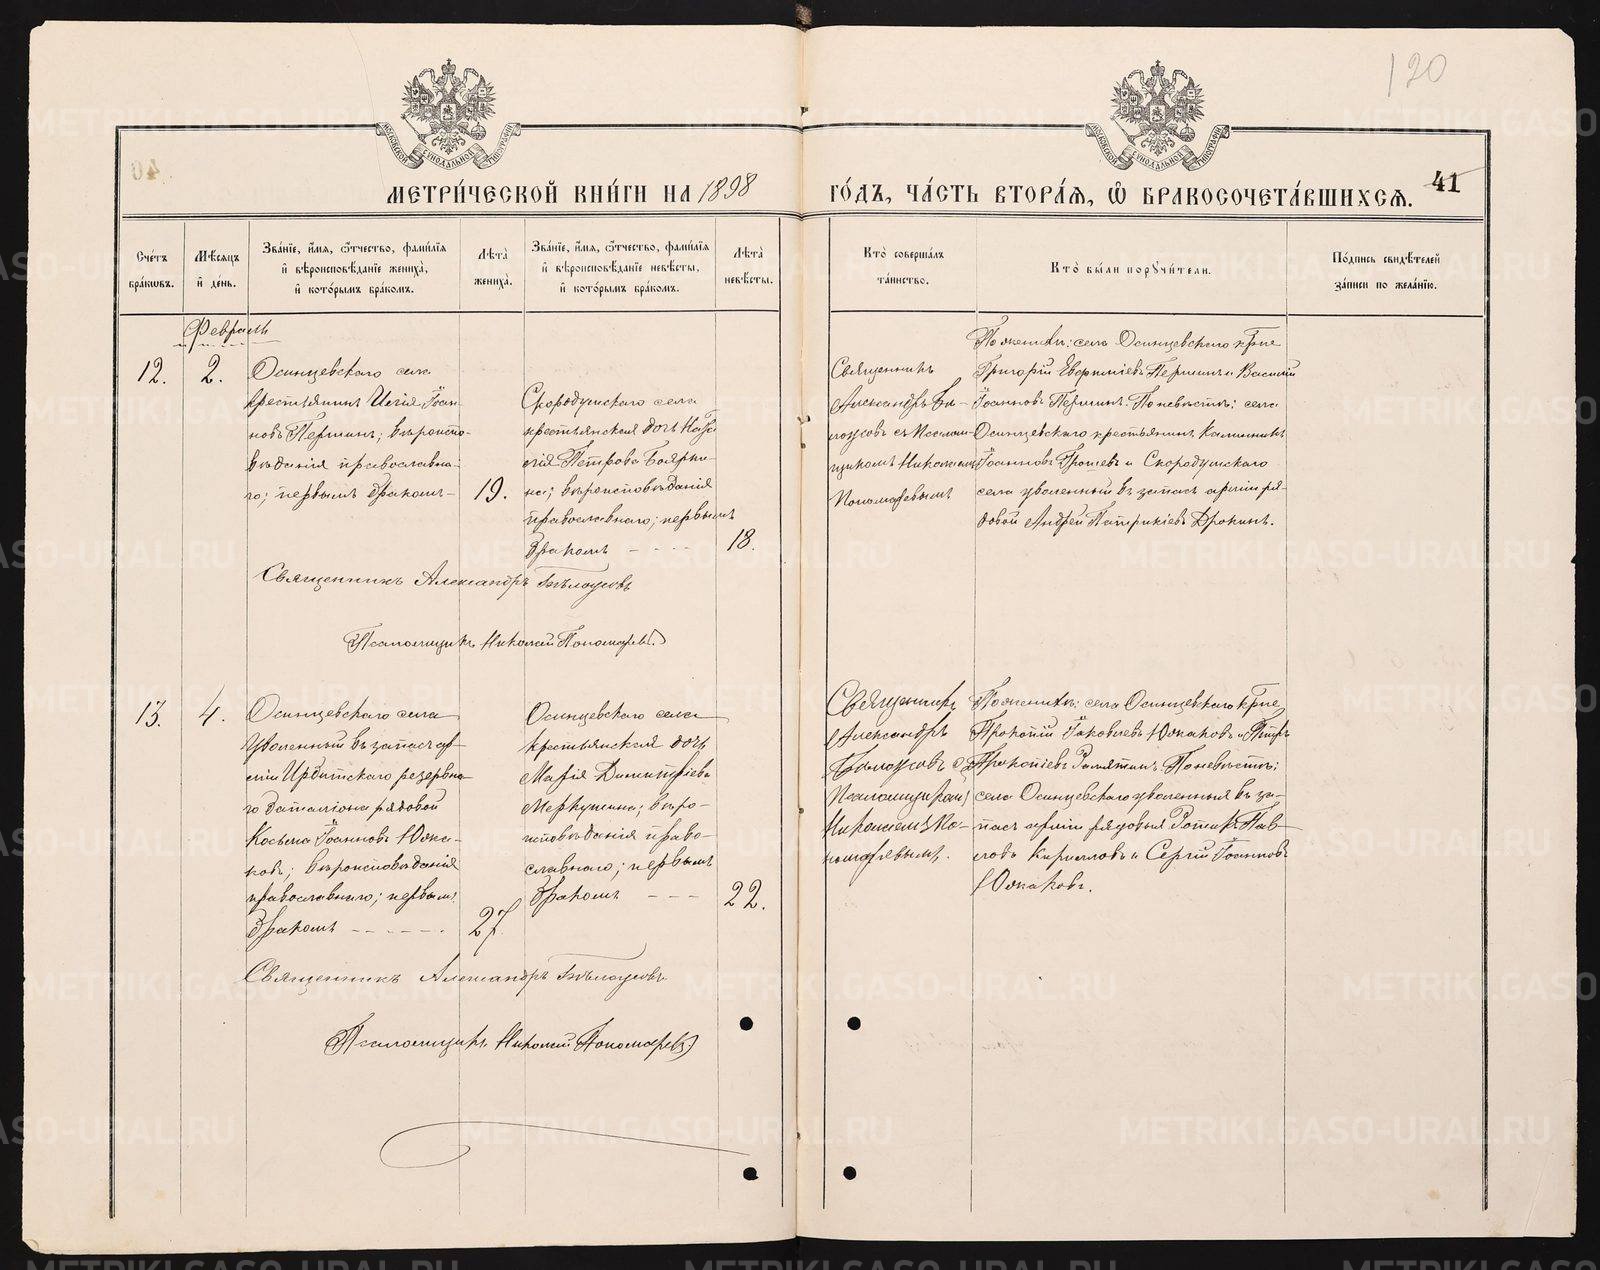 120
МЕТРИ́ЧЕСКОЙ КНИ́ГИ НА 1898 ГО́ДЪ, ЧА́СТЬ ВТОРА́Я, Ѡ БРАКОСОЧЕТА́ВШИХСЯ.
41
Сче́тъ бра́кѡвъ.
Мѣ́сяцъ и де́нь.
Зва́нїе, и́мя, ѻ́тчество, фами́лїя и вѣроисповѣ́данїе жениха̀, и кото́рымъ бра́комъ.
Лѣта̀ жениха̀.
Зва́нїе, и́мя, ѻ́тчество, фами́лїя и вѣроисповѣ́данїе невѣ́сты, и кото́рымъ бра́комъ.
Лѣта̀ невѣ́сты.
Кто̀ соверша́лъ та́инство.
Кто̀ бы́ли порꙋчи́тели.
По́дпись свидѣ́телей за́писи по жела́нїю.
Февраль
12.
2.
Осинцевскаго села
крестьянинъ Іоан-
новъ Першинъ; вѣроиспо-
вѣданія православна-
го; первымъ бракомъ
19.
Скородумскаго села
крестьянская дочь
Петрова Бояркина
на; вѣроисповѣданія
православнаго; первымъ
бракомъ
18.
Священникъ
Александръ Бѣ-
лоусовъ съ Псалом-
щикомъ Николаемъ
Пономаревымъ
По женихѣ: села Осинцевскаго кр-не
Григорій Евфиміевъ Першинъ и Василій
Іоанновъ Першинъ. По невѣстѣ: села
Осинцевскаго крестьянинъ Каллиникъ
Іоанновъ и Скородумскаго
села уволенный въ запасъ арміи ря-
довой Андрей Патрикіевъ Дрокинъ.
Священникъ Александръ Бѣлоусовъ
Псаломщикъ Николай Пономаревъ
13.
4.
Осинцевскаго села
уволенный въ запасъ ар-
міи Ирбитскаго резервна-
го баталіона рядовой
Косьма Іоанновъ Южа-
ковъ; вѣроисповѣданія
православнаго; первымъ
бракомъ
27
Осинцевскаго села
крестьянская дочь
Марія Димитріева
Меркушина; вѣро-
исповѣданія право-
славнаго; первымъ
бракомъ
22.
Священникъ
Александръ
Бѣлоусовъ съ
Псаломщикомъ
Николаемъ По-
номаревымъ.
По женихѣ: села Осинцевскаго кр-не
Прокопій Іаковлевъ Южаковъ и Петръ
Прокопіевъ По невѣстѣ:
села Осинцевскаго уволенныя въ за-
пасъ арміи рядовыя Пав-
ловъ Кирилловъ и Сергій Іоанновъ
Южаковъ.
Священникъ Александръ Бѣлоусовъ
Псаломщикъ Николай Пономаревъ